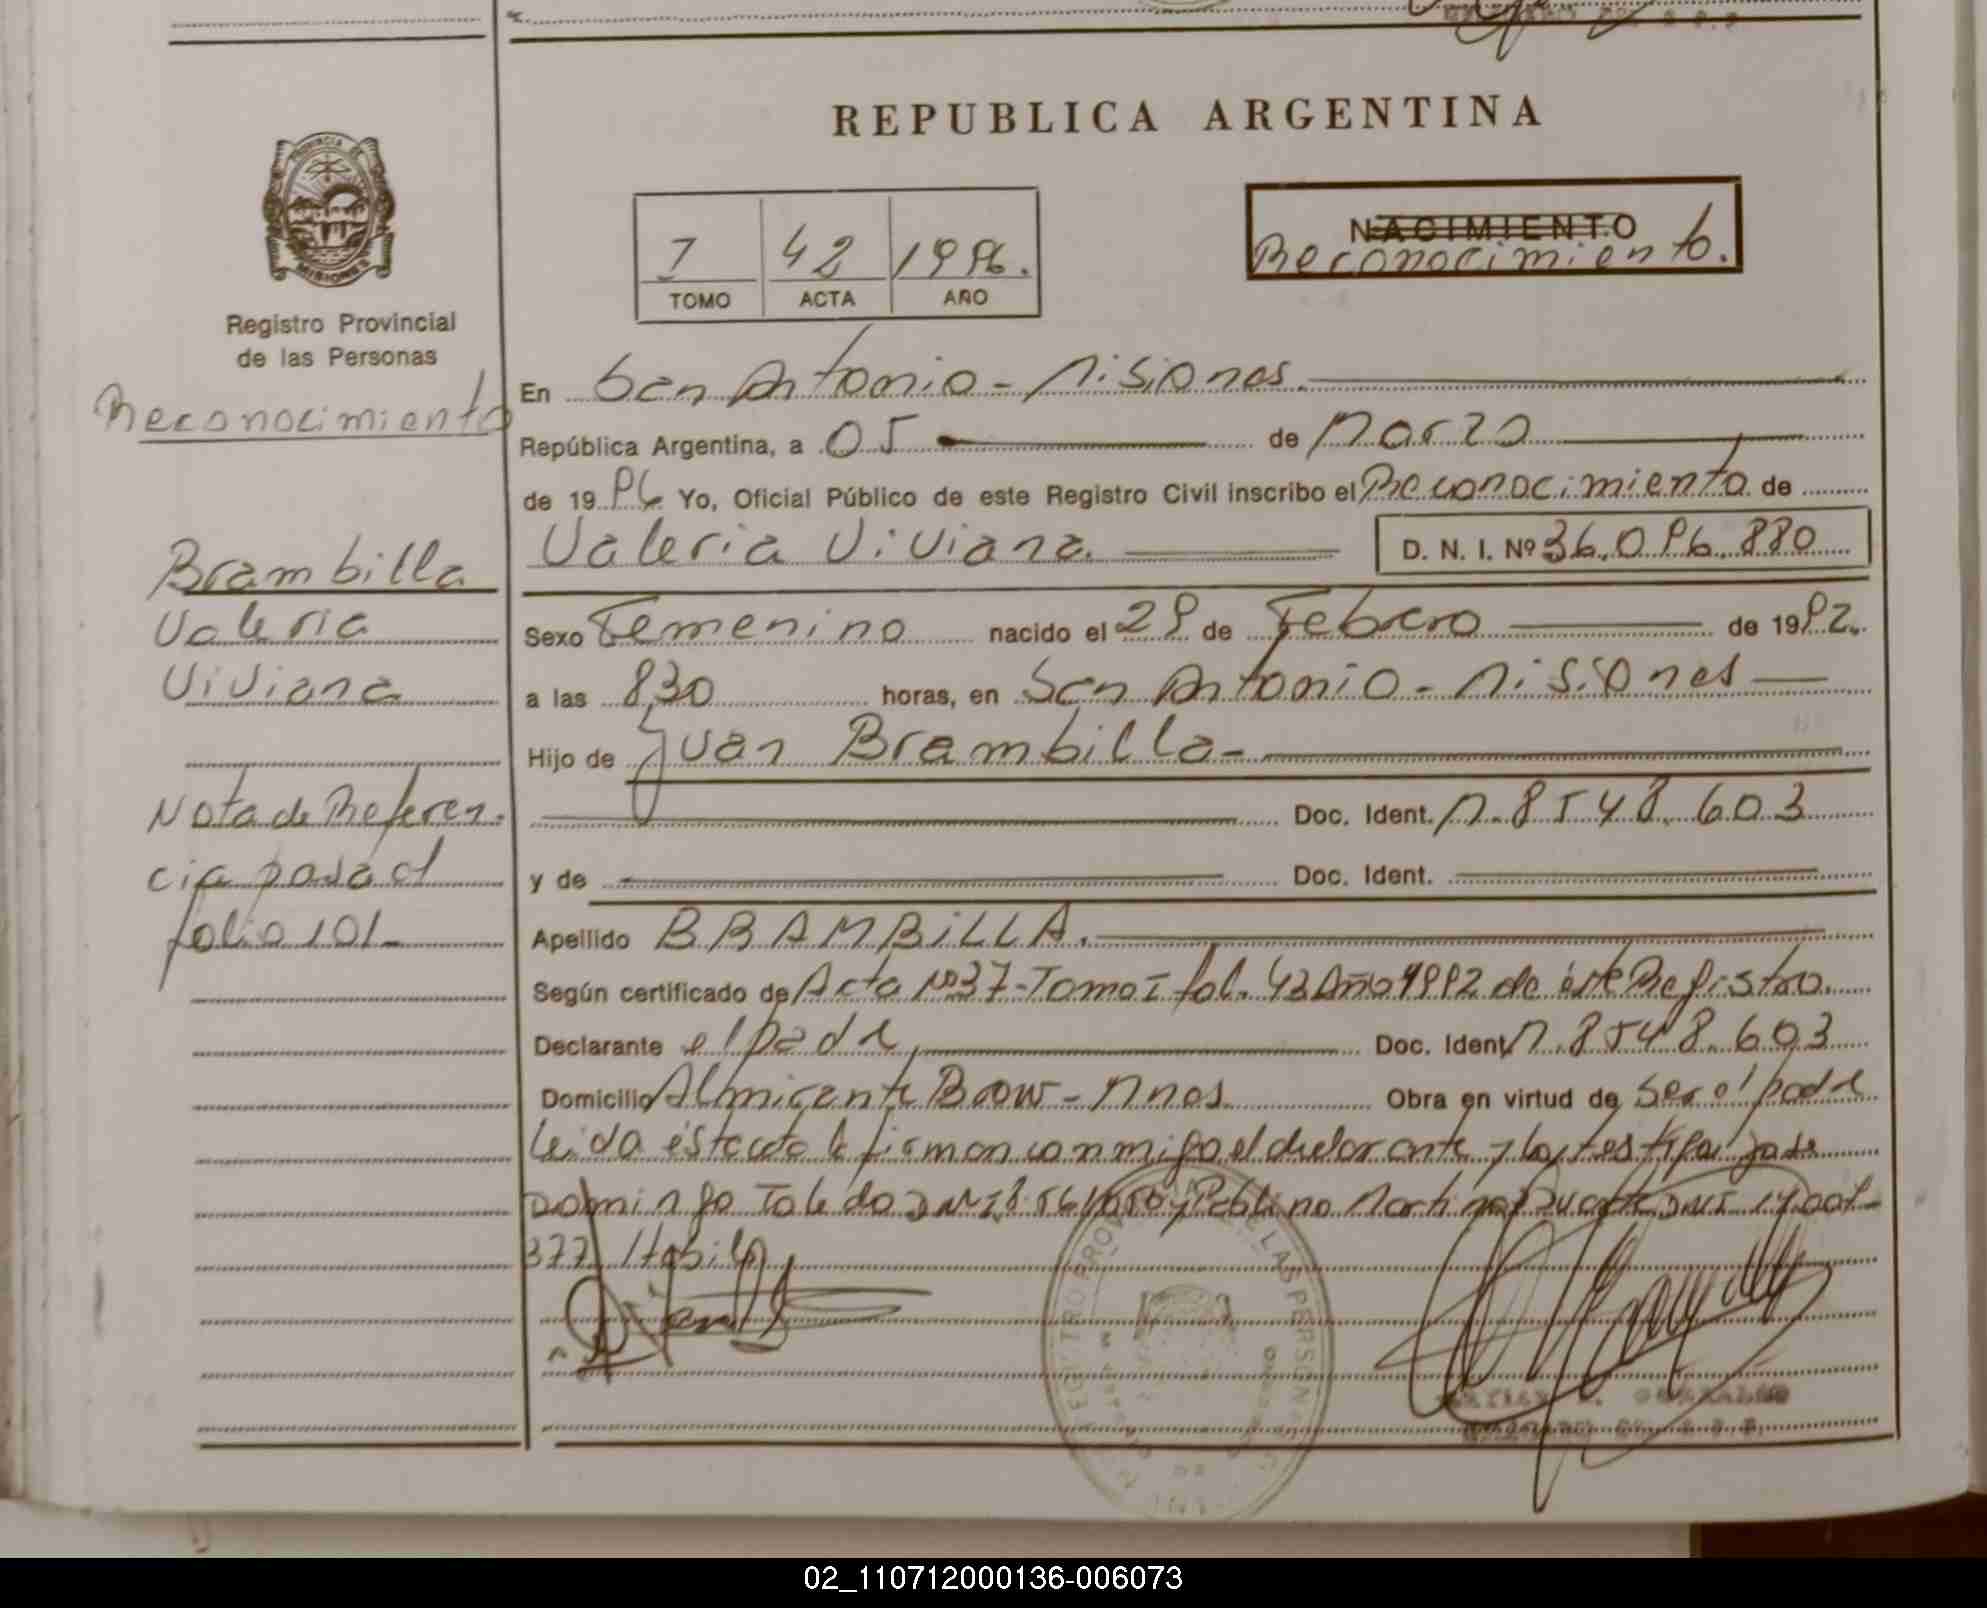 REPUBLICA ARGENTINA
7 42 1996.
TOMO ACTA AÑO
NACIMIENTO
Reconocimiento.
PROVINCIA DE
MISIONES
Registro Provincial
de las Personas
Reconocimiento
Brambilla
Valeria
Viviana
Nota de Referen-
cia pasa al
folio 101-
En San Antonio - Misiones.
República Argentina, a 05 de Marzo
de 1996 Yo, Oficial Público de este Registro Civil inscribo el Reconocimiento de
Valeria Viviana. D. N. I. Nº 36.096.880
Sexo Femenino nacido el 29 de Febrero de 1992.
a las 8,30 horas, en San Antonio - Misiones
Hijo de Juan Brambilla-
Doc. Ident. M.8548.603
y de Doc. Ident.
Apellido BRAMBiLLA.
Según certificado de Acta Nº37-Tomo I fol. 43 Año 1992 de éste Registro.
Declarante el padre, Doc. Ident. M.8548.603
Domicilio Almirante Brow - Mnes. Obra en virtud de ser el padre
leida ésta acta la firman conmigo el declarante y los testigos
Domingo Toledo DNI 8.561. y Martinez Duarte DNI
377 Habiles
02_110712000136-006073